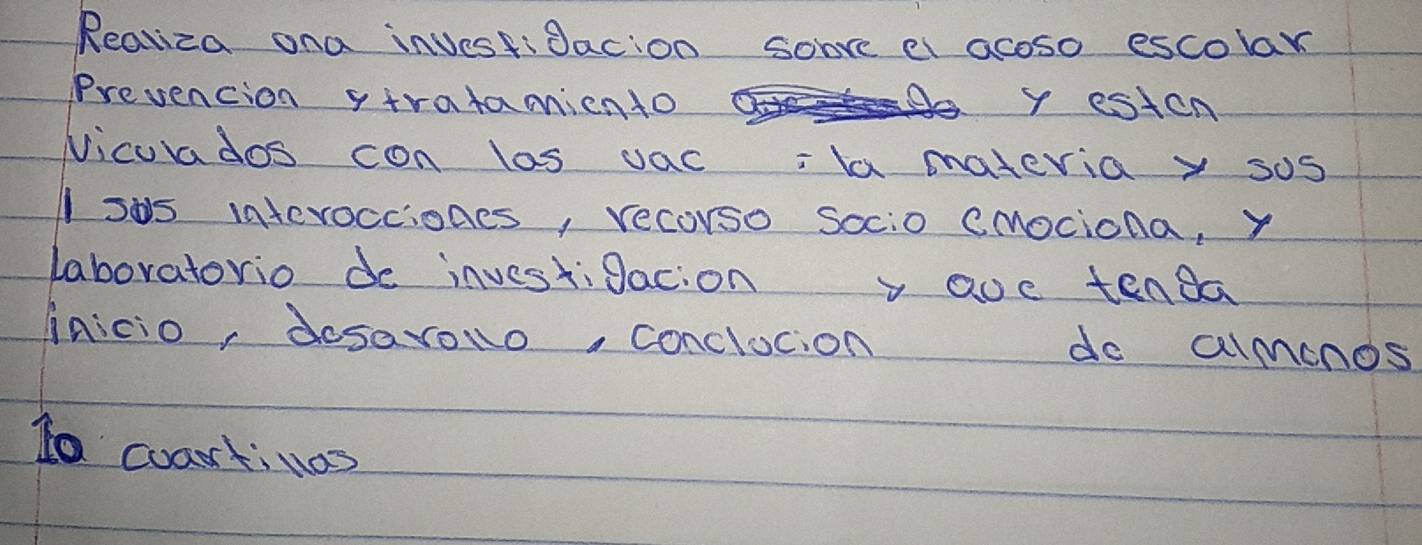 Realiza una investigacion sobre el acoso escolar
Prevencion y tratamiento y esten
viculados con las uac : la materia y sus
sus interacciones, recurso socio emociona, y
laboratorio de investigacion y que tenga
inicio, desarollo, conclucion de almenos
10 cuartillas